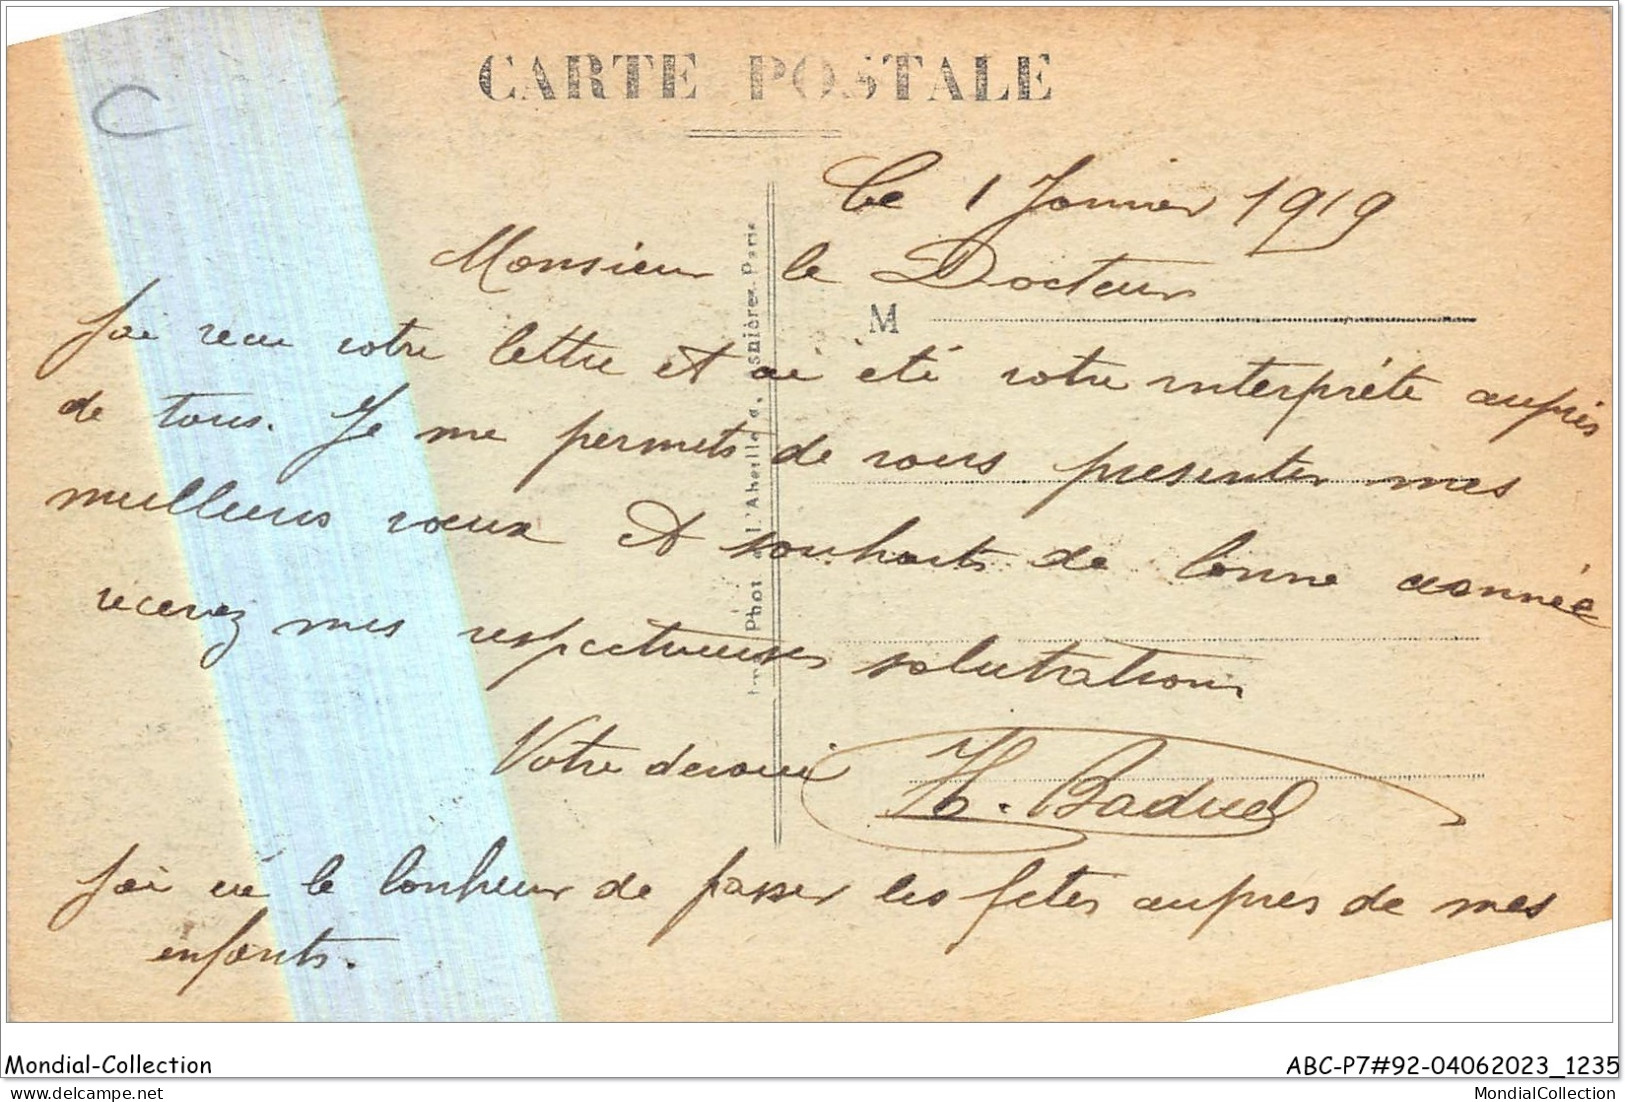 CARTE POSTALE
Le 1 Janvier 1919
Monsieur le Docteur
M
J'ai reçu votre lettre et ai été votre interprète auprès
de tous. Je me permets de vous presenter mes
meilleurs voeux et souhaits de bonne année
recevez mes respectueuses salutations
Votre devoué H. Baduel
J'ai eu le bonheur de passer les fetes aupres de mes
enfants.
Phot. à l'Abeille, Asnières-Paris
C
Mondial-Collection
ABC-P7#92-04062023_1235
MondialCollection